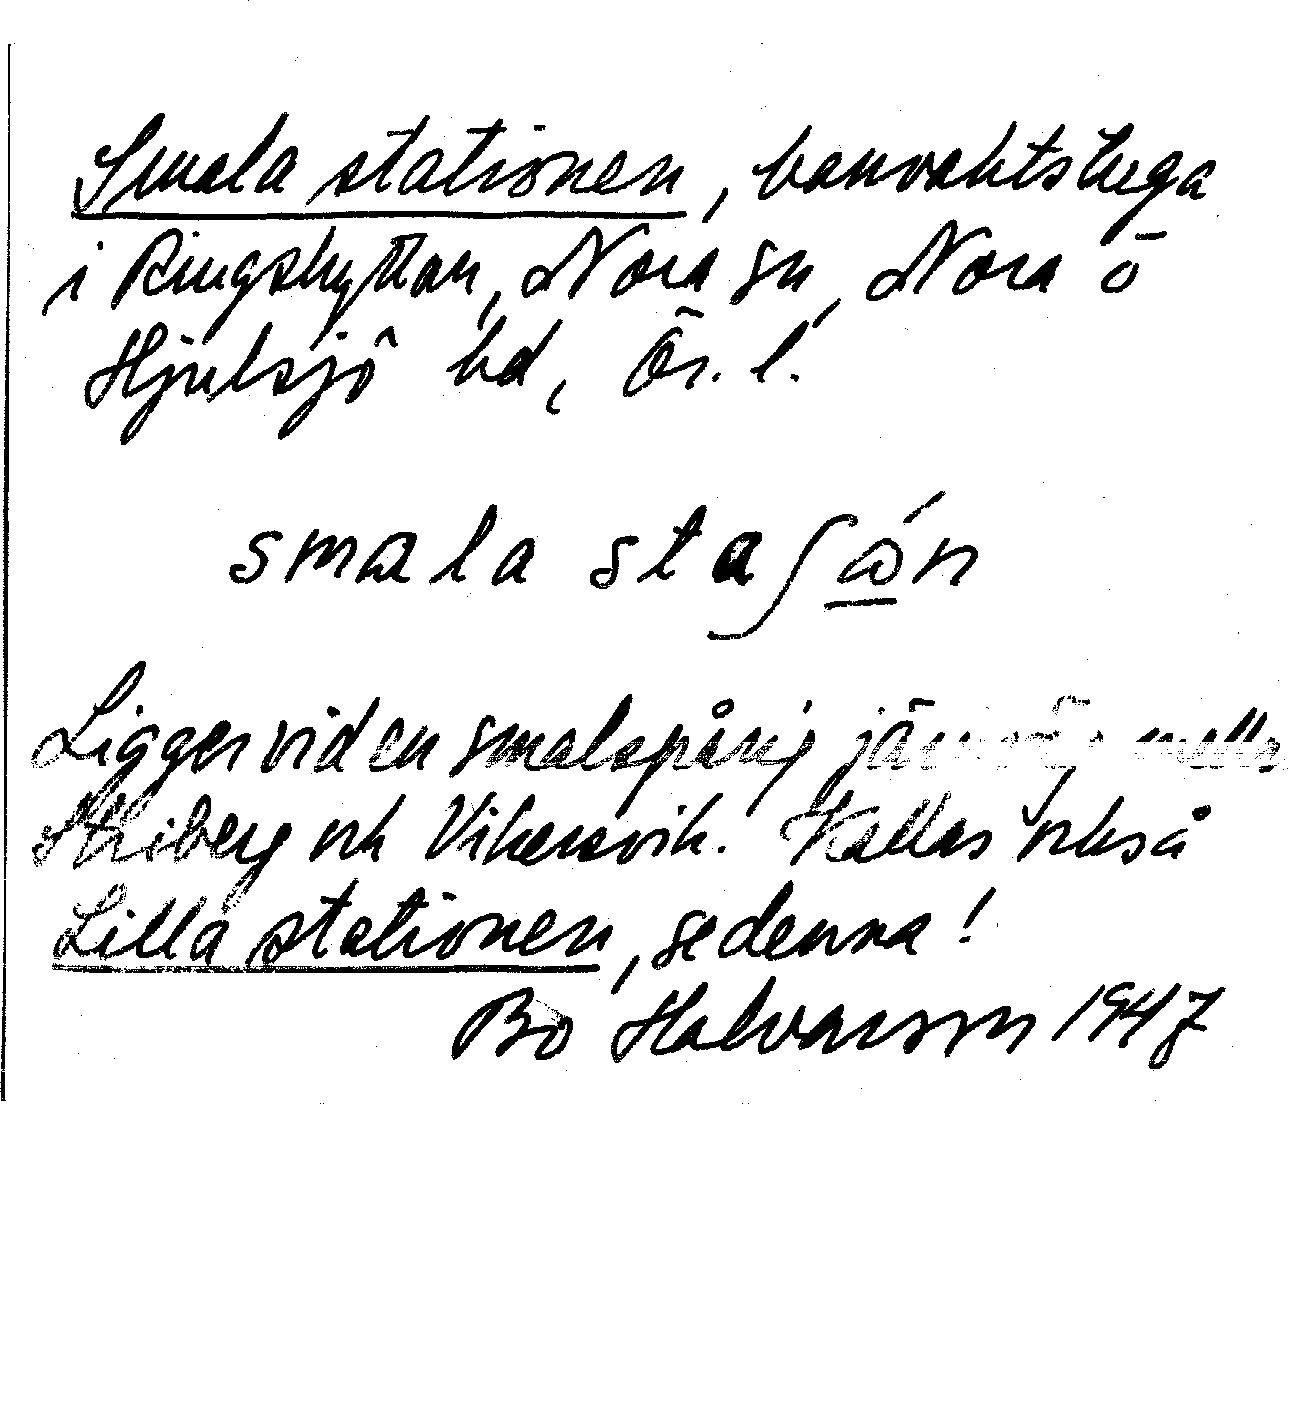 Smala stationen, banvaktstuga
i Ringshyttan, Nora sn, Nora o
Hjulsjö bd, Ör. l.
smala staʃώ̲n
Ligger vid en smalspårig järnväg mella
Striberg och Vikersvik. Kallas också
Lilla stationen, se denna!
Bo Halvarsson 1947